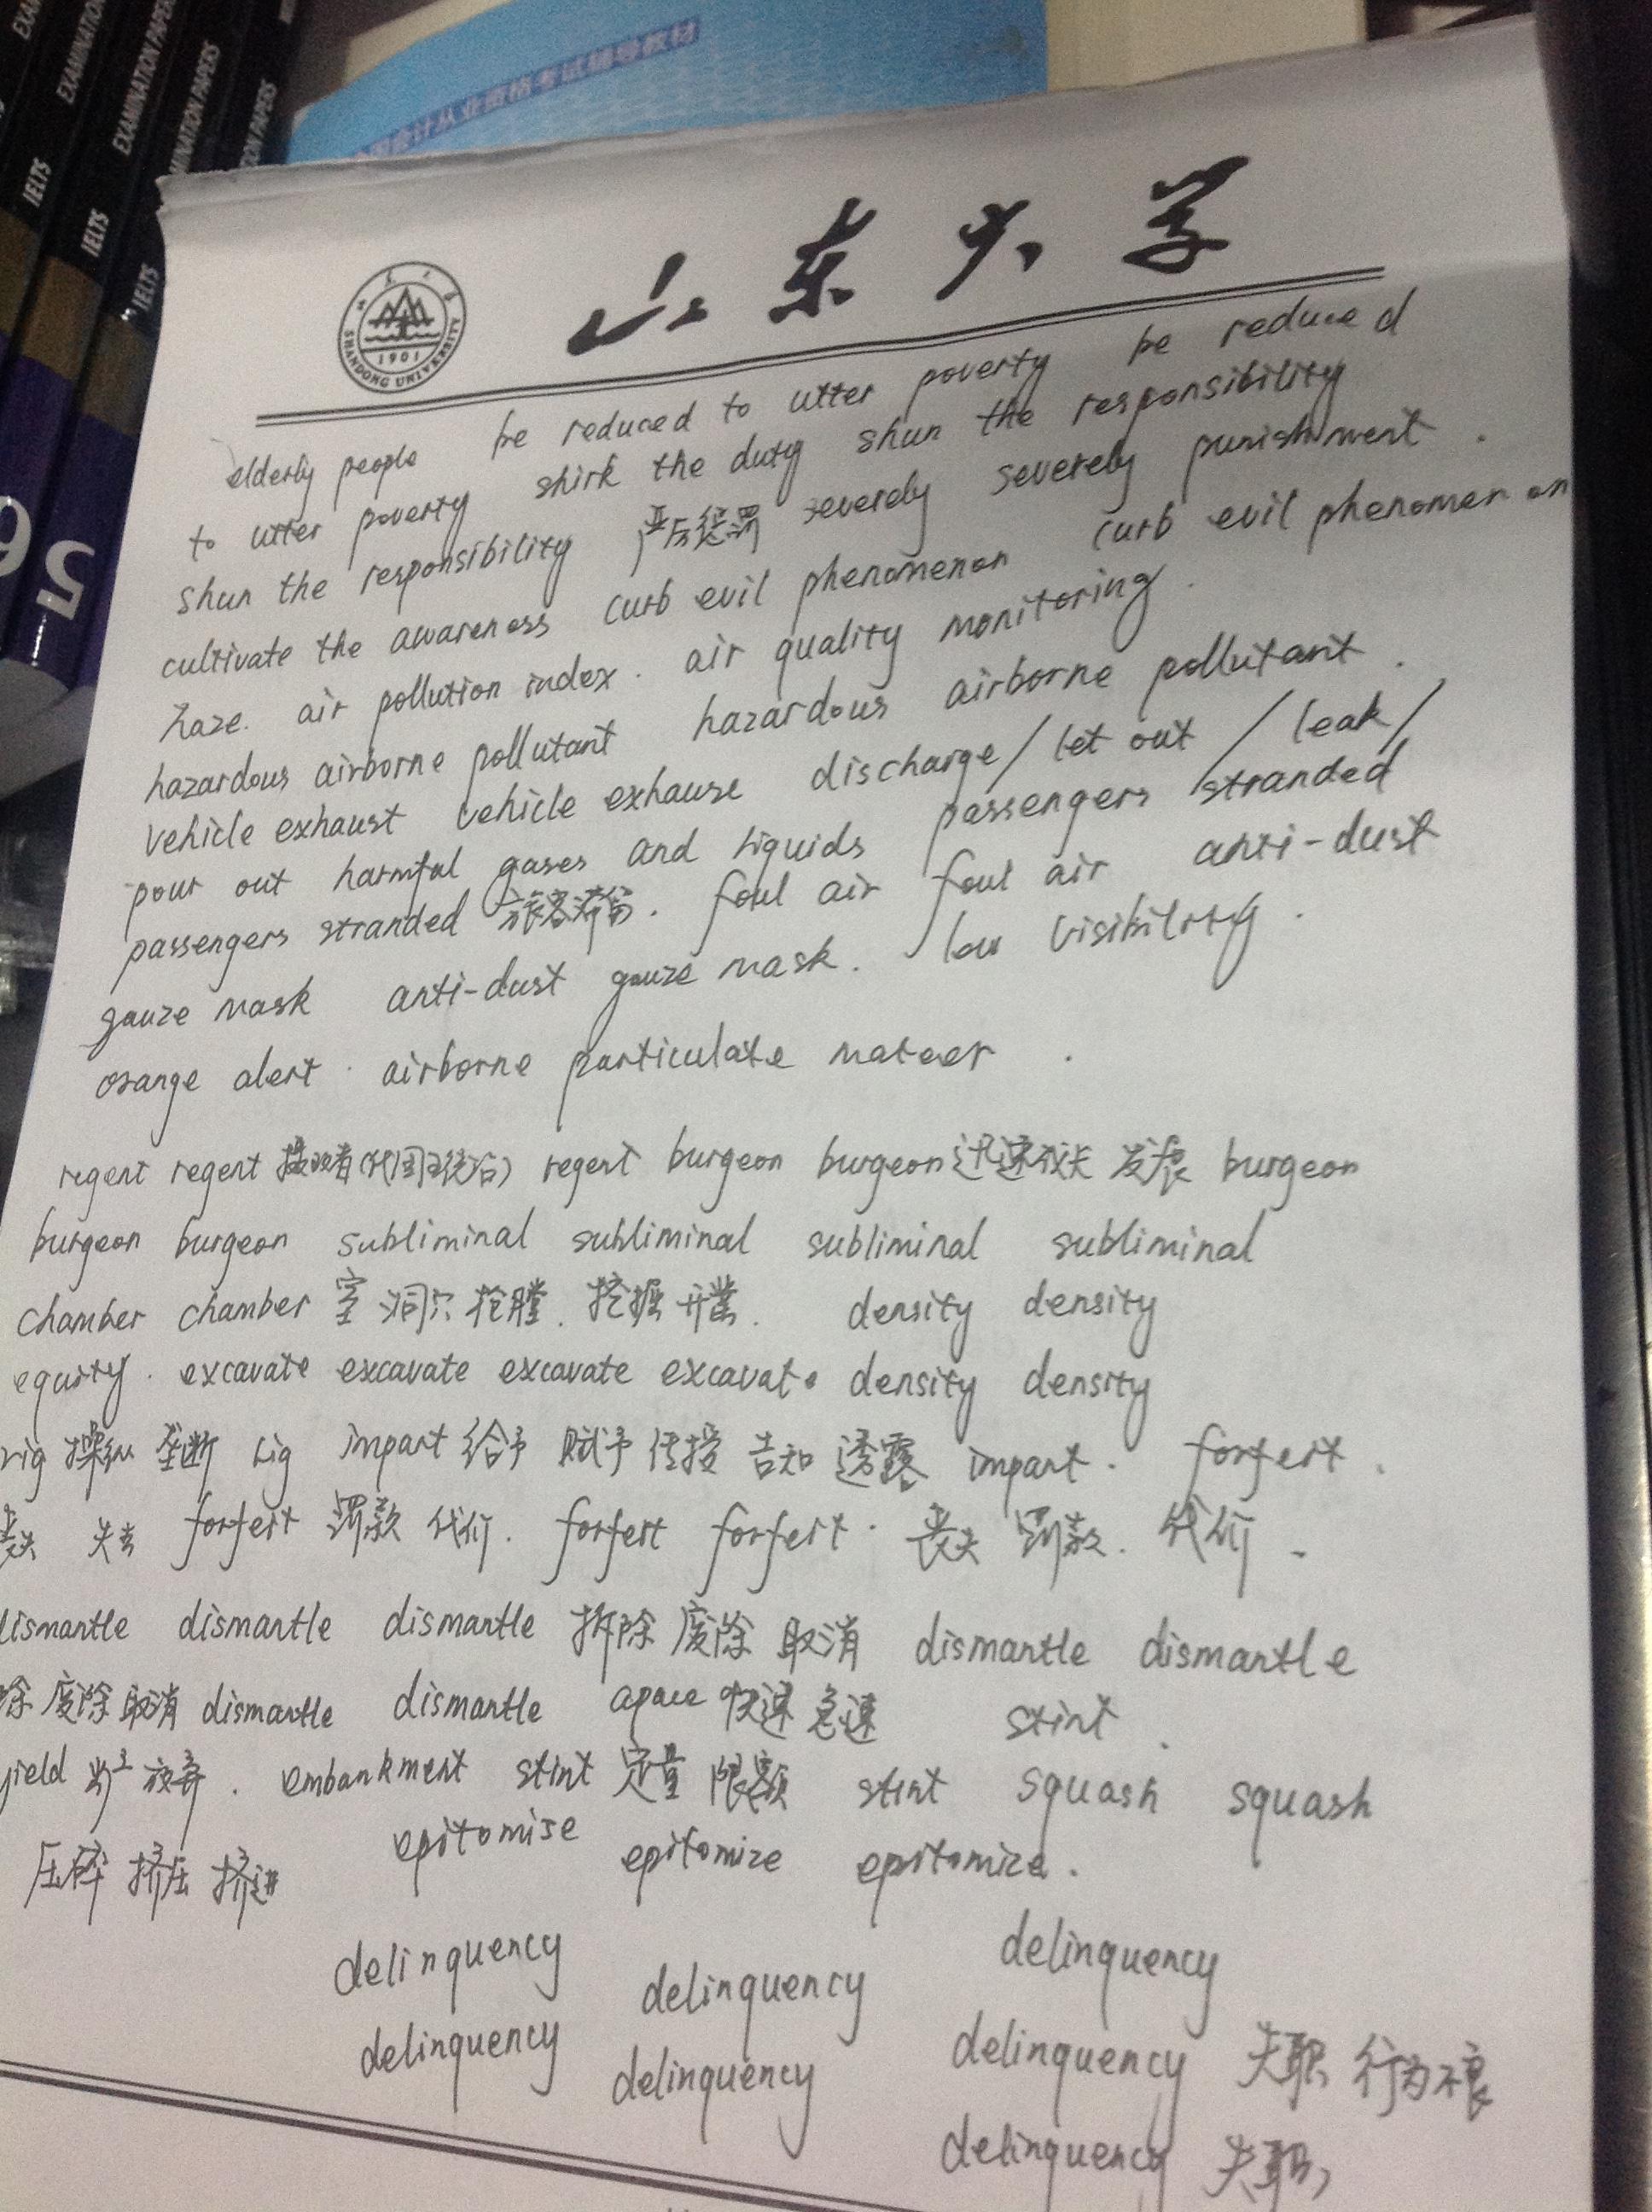 EXAMINATION PAPERS
EXAMINATION PAPERS
IELTS
IELTS
IELTS
5
山东大学
SHANDONG UNIVERSITY
1901
elderly people be reduced to utter poverty be reduced
to utter poverty shirk the duty shun the responsibility
shun the responsibility 严厉惩罚 severely severely punishment.
cultivate the awareness curb evil phenomenon curb evil phenomenon
haze. air pollution index. air quality monitoring.
hazardous airborne pollutant hazardous airborne pollutant.
vehicle exhaust vehicle exhause discharge/let out/leak/
pour out harmful gases and liquids passengers stranded
passengers stranded 旅客滞留. foul air foul air anti-dust
gauze mask anti-dust gauze mask. low visibility.
orange alert. airborne particulate mateer.
regent regent 摄政者(代国王统治) regent burgeon burgeon 迅速成长 发展 burgeon
burgeon burgeon subliminal subliminal subliminal subliminal
chamber chamber 室 洞穴 枪膛. 挖掘 开凿. density density
equity. excavate excavate excavate excavate density density
rig 操纵 垄断 rig impart 给予 赋予 传授 告知 透露 impart. forfeit.
丧失 失去 forfeit 罚款 代价. forfeit forfeit. 丧失 罚款. 代价.
dismantle dismantle dismantle 拆除 废除 取消 dismantle dismantle
除 废除 取消 dismantle dismantle apace 快速 急速 stint.
yield 放弃. embankment stint 定量 限额 stint squash squash
压碎 挤压 挤进 epitomise epitomize epitomize.
delinquency delinquency delinquency
delinquency delinquency delinquency 失职 行为不良
delinquency 失职,